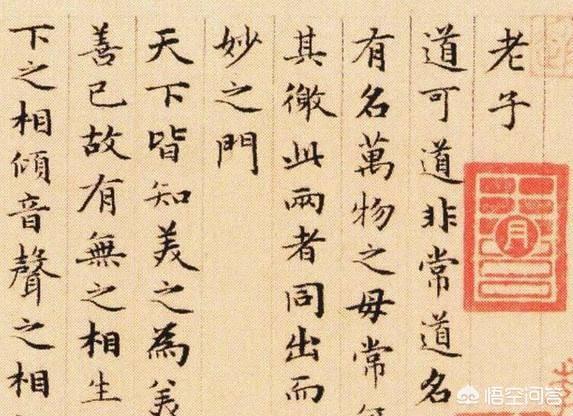 老子
道可道非常道名
有名萬物之母常
其徼此兩者同出而
妙之門
天下皆知美之為美
善已故有無之相生
下之相傾音聲之相
月
悟空问答